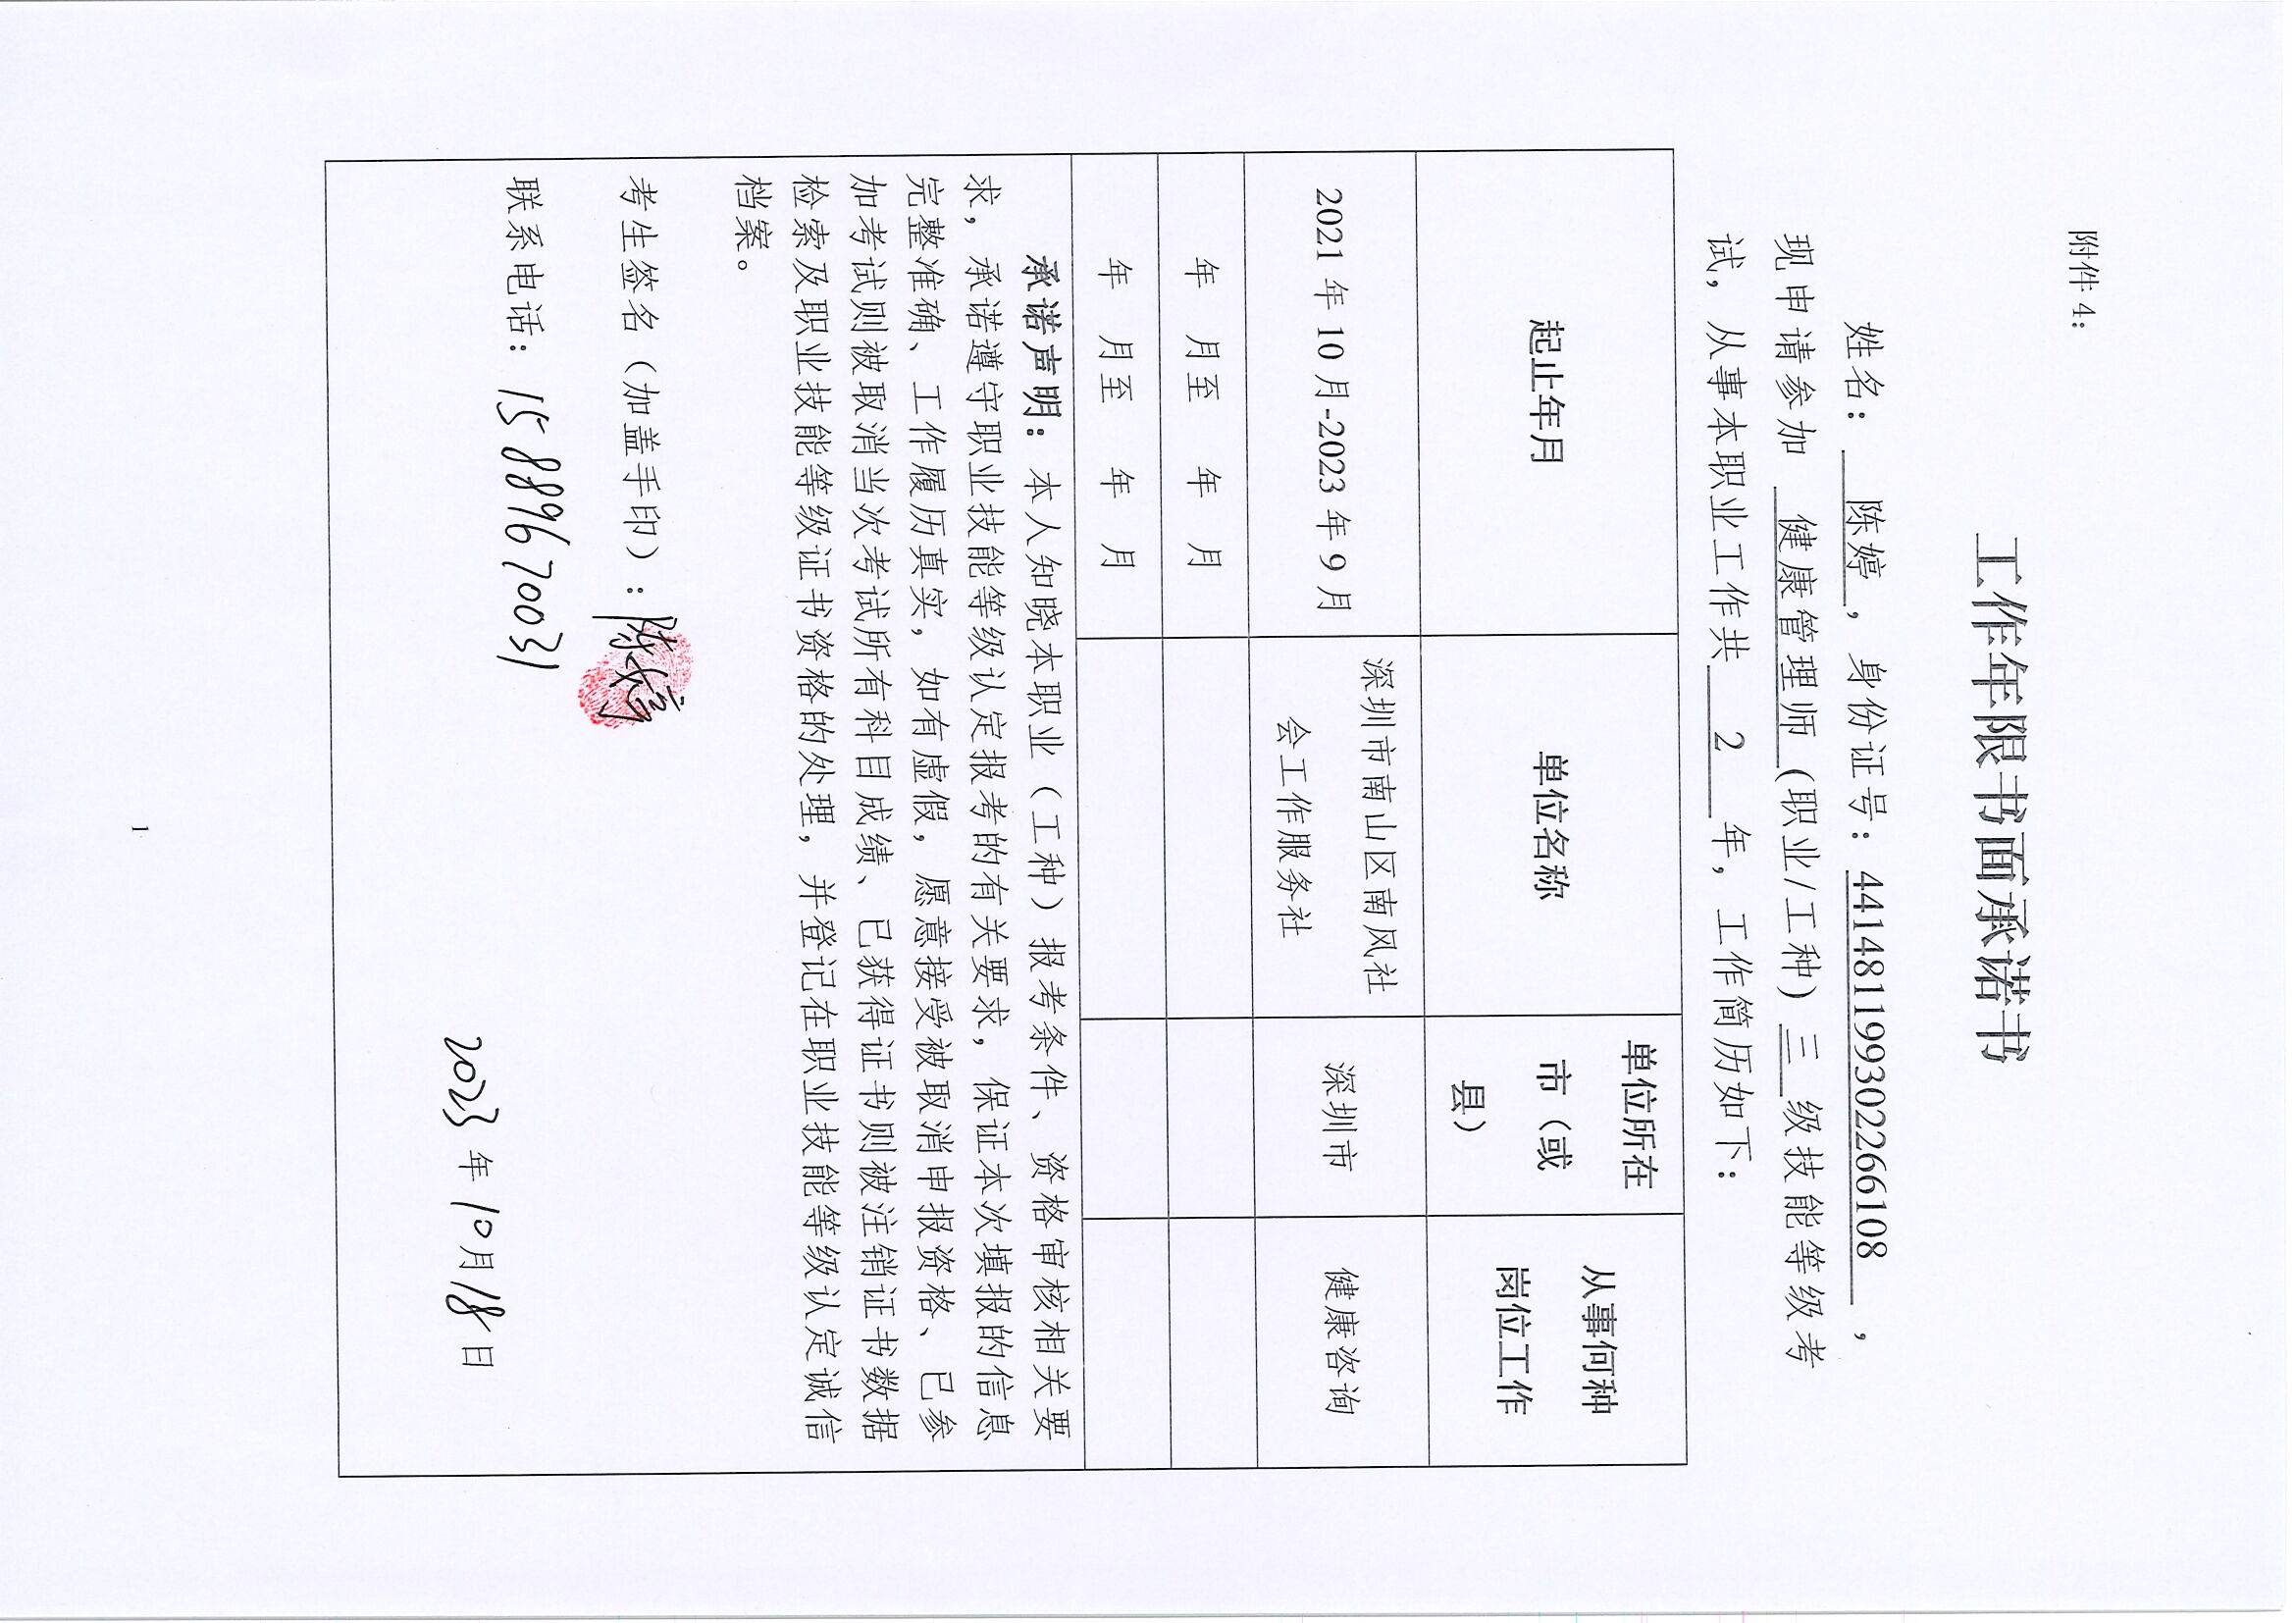 附件 4：
工作年限书面承诺书
姓名： 陈婷 ，身份证号：441481199302266108 ，
现申请参加 健康管理师 (职业/工种) 三 级技能等级考
试，从事本职业工作共 2 年，工作简历如下：
起止年月 单位名称 单位所在市（或县） 从事何种岗位工作
2021 年 10 月-2023 年 9 月 深圳市南山区南风社会工作服务社 深圳市 健康咨询
年 月至 年 月
年 月至 年 月
承诺声明：本人知晓本职业（工种）报考条件、资格审核相关要
求，承诺遵守职业技能等级认定报考的有关要求，保证本次填报的信息
完整准确、工作履历真实，如有虚假，愿意接受被取消申报资格、已参
加考试则被取消当次考试所有科目成绩、已获得证书则被注销证书数据
检索及职业技能等级证书资格的处理，并登记在职业技能等级认定诚信
档案。
考生签名（加盖手印）：陈婷
联系电话：15889670031
2023 年 10 月 18 日
1